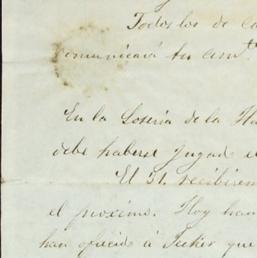 Todos los de ca
comunicará tu am.te
En la Loteria de la Ha
debe haberse jugado e
El 31. recibirem
el proximo. Hoy han
han ofrecido á Tucker que